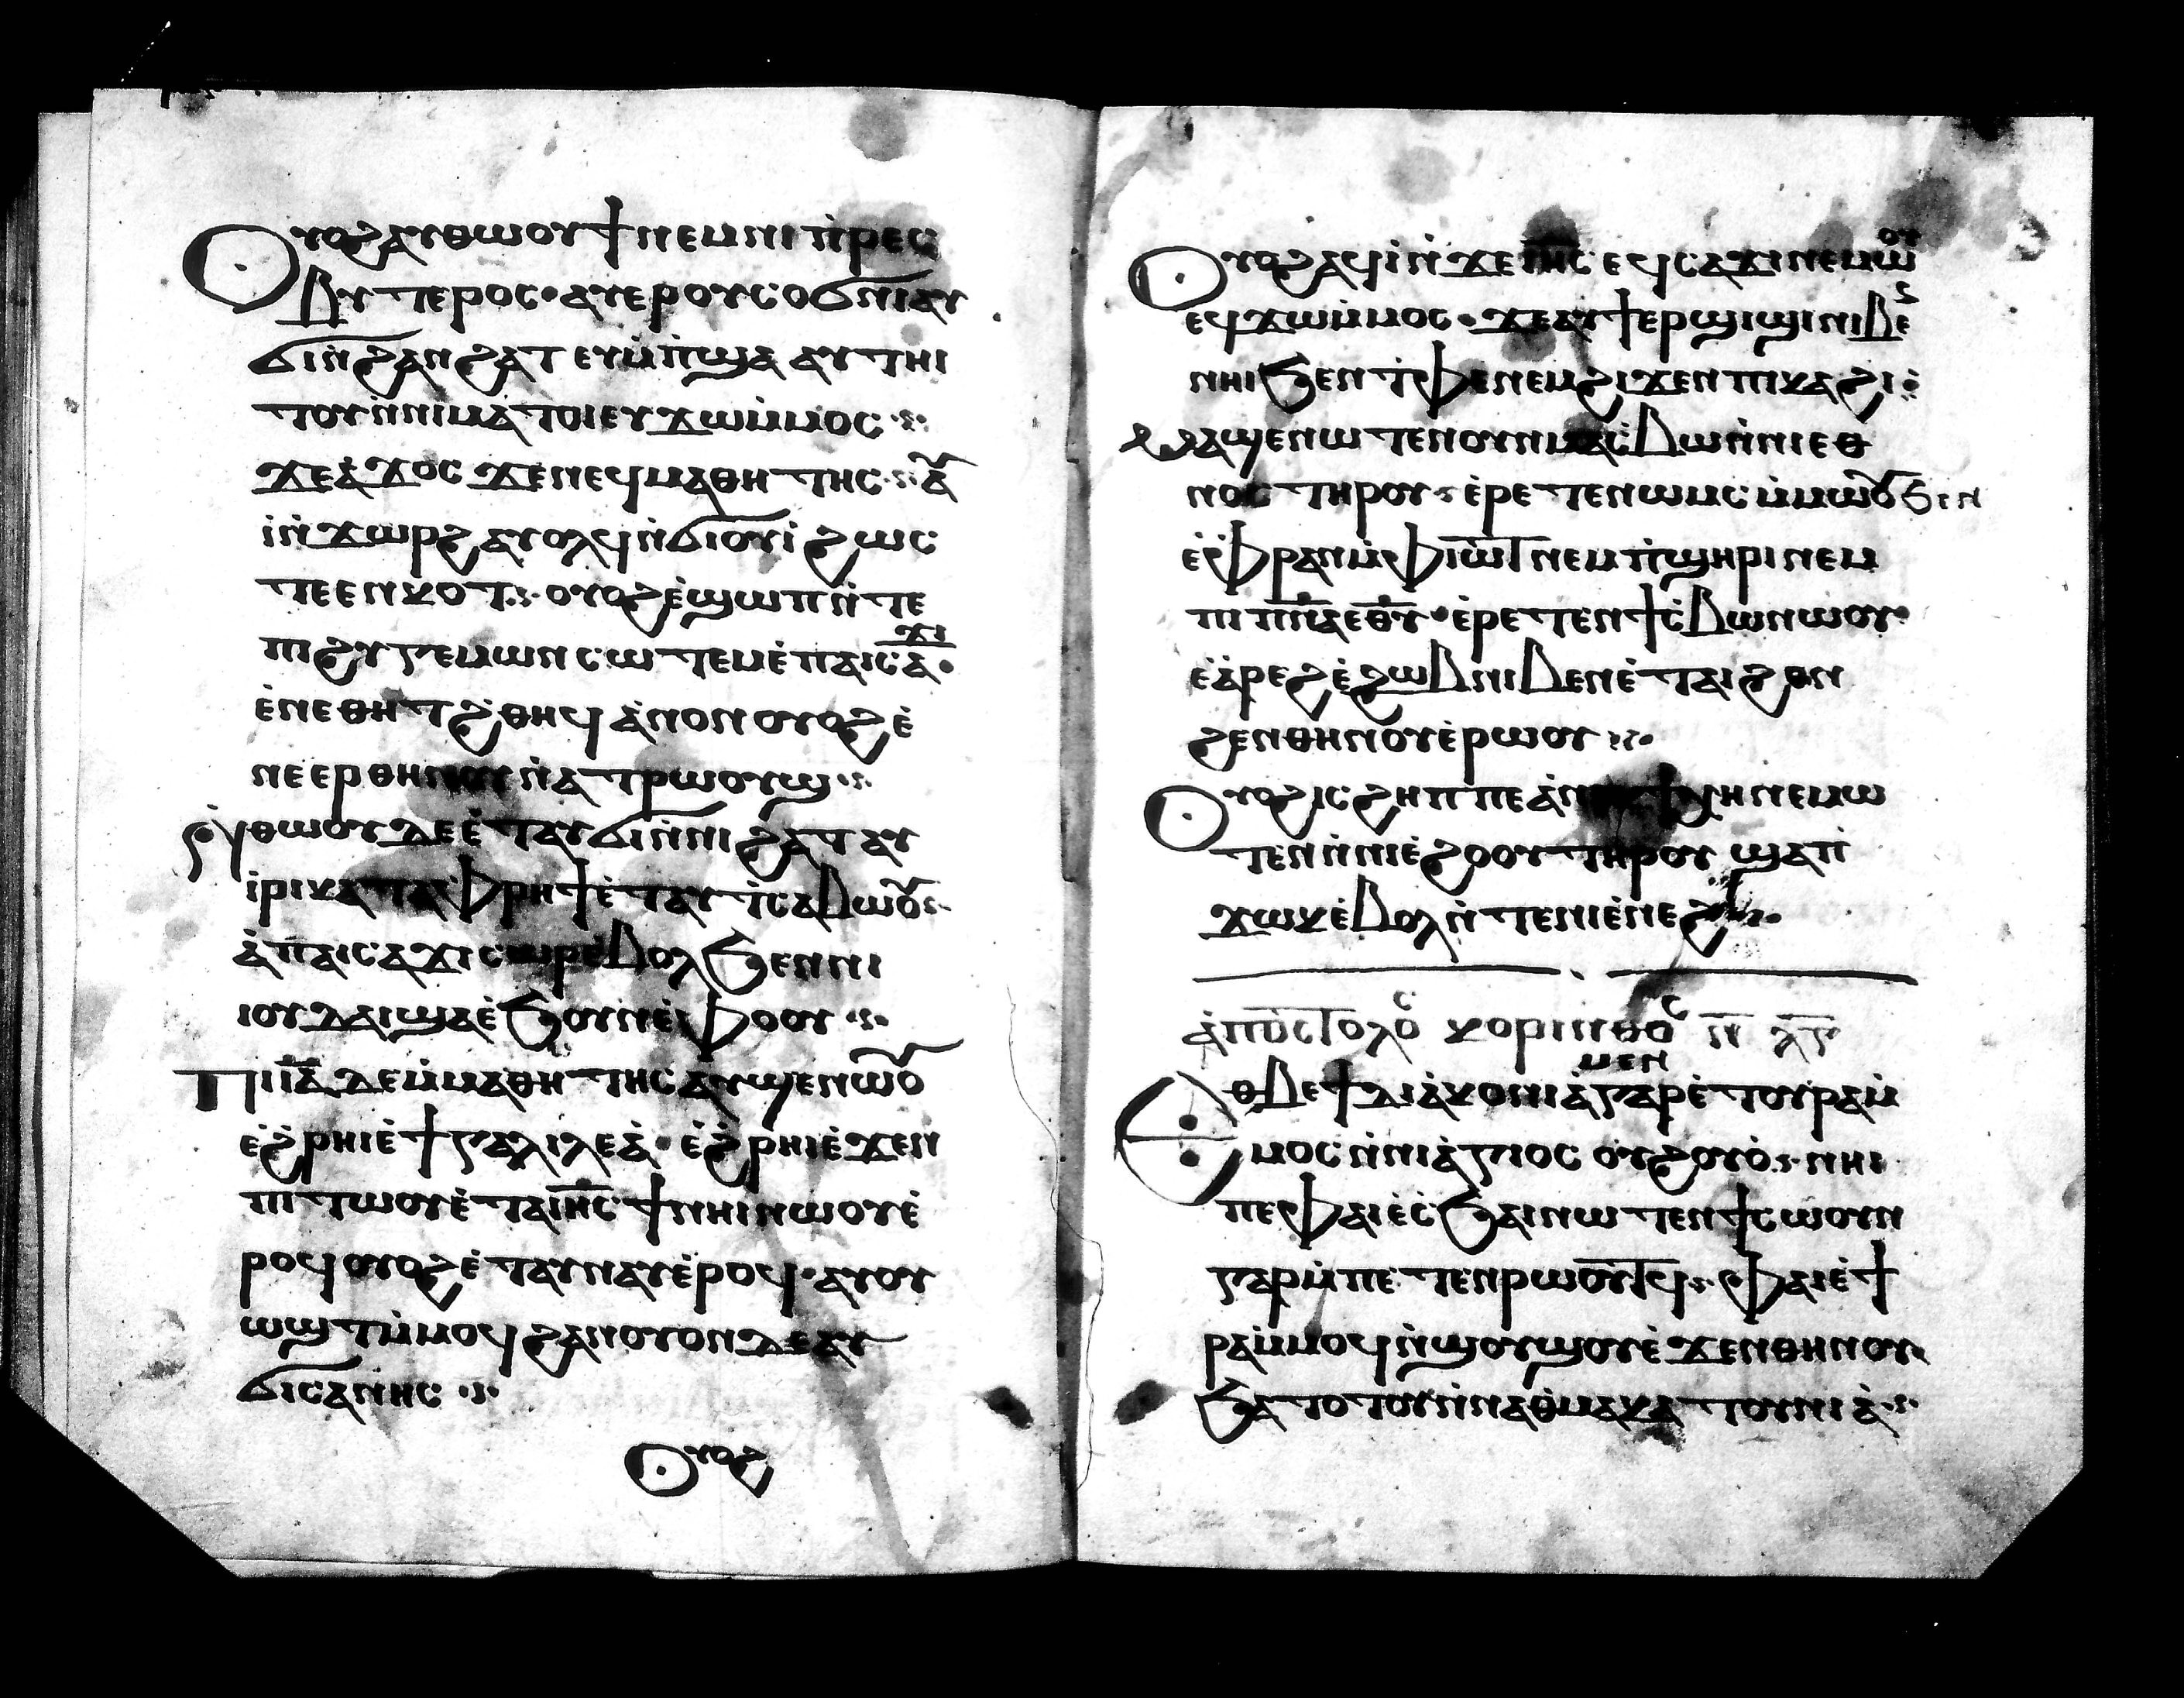 Ⲟⲩⲟϩⲁⲩⲑⲱⲟⲩϯⲛⲉⲙⲛⲓⲡ̀ⲣⲉⲥ
ⲃⲩⲧⲉⲣⲟⲥ·ⲁⲩⲉⲣⲟⲩⲥⲟϭⲛⲓⲁⲩ
ϭⲓⲛ̀ϩⲁⲛϩⲁⲧ ⲉⲩⲙ̀ⲡ̀ϣⲁ ⲁⲩⲧⲏⲓ
ⲧⲟⲩⲛ̀ⲛⲓⲙⲁⲧⲟⲓⲉⲩϫⲱⲙ̀ⲙⲟⲥ
ϫⲉⲁ̀ϫⲟⲥ ϫⲉⲛⲉϥⲙⲁⲑⲏⲧⲏⲥ ⲁ̀ⲩ
ⲓ̀ⲛ̀ϫⲱⲣϩ ⲁⲩⲟⲗϥⲛ̀ϭⲓⲟⲩⲓ̀ ϩⲱⲥ
ⲧⲉⲉⲛⲕⲟⲧ ⲟⲩⲟϩⲉ̀ϣⲱⲡⲛ̀ⲧⲉ
ⲡⲓϩⲩⲅⲉⲙⲱⲛⲥⲱⲧⲉⲙⲉ̀ⲡⲁⲓⲥⲁϫⲓ
ⲉ̀ⲛⲉⲑⲏⲧϩ̀ⲑⲏϥ ⲁ̀ⲛⲟⲛ ⲟⲩⲟϩⲉ̀
ⲛⲉⲉⲣⲑⲏⲛⲟⲩⲛ̀ⲁⲧⲣⲱⲟⲩϣ
ⲛ̀ⲑⲱⲟⲩⲇⲉⲉ̀ⲧⲁⲩϭⲓⲛ̀ⲛⲓϩⲁⲧ ⲁⲩ
ⲓ̀ⲣⲓⲕⲁⲧⲁⲓ̀ⲫⲣⲏϯⲉ̀ⲧⲁⲩⲧ̀ⲥⲁⲃⲱⲟⲩ
ⲁ̀ⲡⲁⲓⲥⲁϫⲓⲥⲱⲣⲉ̀ⲃⲟⲗϧⲉⲛⲛⲓ
ⲓⲟⲩⲇⲁⲓϣⲁⲉ̀ϧⲟⲩⲛⲉ̀ⲫⲟⲟⲩ
Ⲡⲓⲓ̅ⲁ̅ ⲇⲉⲙ̀ⲙⲁⲑⲏⲧⲏⲥⲁⲩϣⲉⲛⲱⲟⲩ
ⲉ̀ϩ̀ⲣⲏⲓⲉ̀ϯⲅⲁⲗⲓⲗⲉⲁ̀·ⲉ̀ϩ̀ⲣⲏⲓⲉ̀ϫⲉⲛ
ⲡⲓⲧⲱⲟⲩⲉ̀ⲧⲁⲓⲏ̅ⲥ̅ϯⲛⲏⲓⲛⲱⲟⲩⲉ̀
ⲣⲟϥⲟⲩⲟϩⲉ̀ⲧⲁⲩⲛⲁⲩⲉ̀ⲣⲟϥ·ⲁⲩⲟⲩ
ⲱϣⲧⲙ̀ⲙⲟϥϩⲁⲛⲟⲩⲟⲛⲇⲉⲁⲩ
ϭⲓⲥⲁⲛⲏⲥ
Ⲟⲩⲟϩ
Ⲟⲩⲟϩⲁϥⲓ̀ⲛ̀ϫⲉⲓⲏ̅ⲥ̅ ⲉϥⲥⲁϫⲓⲛⲉⲙⲱⲟⲩ
ⲉϥϫⲱⲙ̀ⲙⲟⲥ·ϫⲉⲁⲩϯⲉⲣϣⲓϣⲓⲛⲓⲃⲉ
ⲛⲏⲓϧⲉⲛⲧ̀ⲫⲉⲛⲉⲙϩⲓϫⲉⲛⲡⲓⲕⲁϩⲓ
ⲙⲁϣⲉⲛⲱⲧⲉⲛⲟⲩⲛⲙⲁⲥ̀ⲃⲱⲛ̀ⲛⲓⲉⲑ
ⲛⲟⲥⲧⲏⲣⲟⲩ ⲉ̀ⲣⲉⲧⲉⲛⲱⲙⲥⲙ̀ⲙⲱⲟⲩϧⲉⲛ
ⲉ̀ⲫⲣⲁⲛⲙ̀ⲫⲓⲱⲧⲛⲉⲙⲡ̀ϣⲏⲣⲓⲛⲉⲙ
ⲡⲓⲡ̅ⲛ̅ⲁ̅ⲉⲑ̅ⲩ̅·ⲉ̀ⲣⲉⲧⲉⲛϯⲥ̀ⲃⲱⲛⲱⲟⲩ·
ⲉ̀ⲁ̀ⲣⲉϩⲉ̀ϩⲱⲃⲛⲓⲃⲉⲛⲉ̀ⲧⲁⲓϩⲟⲛ
ϩⲉⲛⲑⲏⲛⲟⲩⲉ̀ⲣⲱⲟⲩ
Ⲟⲩⲟϩⲓⲥϩⲏⲡⲡⲉⲁ̀ⲛⲟⲕϯⲭⲏⲛⲉⲙⲱ
ⲧⲉⲛⲛ̀ⲛⲓⲉ̀ϩⲟⲟⲩⲧⲏⲣⲟⲩ ϣⲁⲡ̀
ϫⲱⲕⲉ̀ⲃⲟⲗⲛ̀ⲧⲉⲛⲓⲉ̀ⲛⲉϩ
ⲁ̀ⲡⲟⲥⲧⲟⲗⲟⲥ ⲕⲟⲣⲓⲛⲑⲟⲥ
Ⲉⲑⲃⲉϯⲇⲓⲁ̀ⲕⲟⲛⲓⲁ̀ⲙⲉⲛⲅⲁⲣⲉ̀ⲧⲟⲩⲣⲁⲙ̀
ⲙⲟⲥⲛ̀ⲛⲓⲁ̀ⲅⲓⲟⲥ ⲟⲩϩⲟⲩⲟ̀ ⲛⲏⲓ
ⲡⲉⲫⲁⲓⲉ̀ⲥ̀ϧⲁⲓⲛⲱⲧⲉⲛϯⲥⲱⲟⲩⲛ
ⲅⲁⲣⲙ̀ⲡⲉⲧⲉⲛⲣⲱⲟⲩⲧϥ ⲫⲁⲓⲉ̀ϯ
ⲣⲁⲙ̀ⲙⲟϥⲛ̀ϣⲟⲩϣⲟⲩⲉ̀ϫⲉⲛⲑⲏⲛⲟⲩ
ϧⲁⲧⲟⲧⲟⲩⲛ̀ⲛⲁⲑⲙⲁⲕⲁⲧⲟⲩⲛⲓⲁ̀